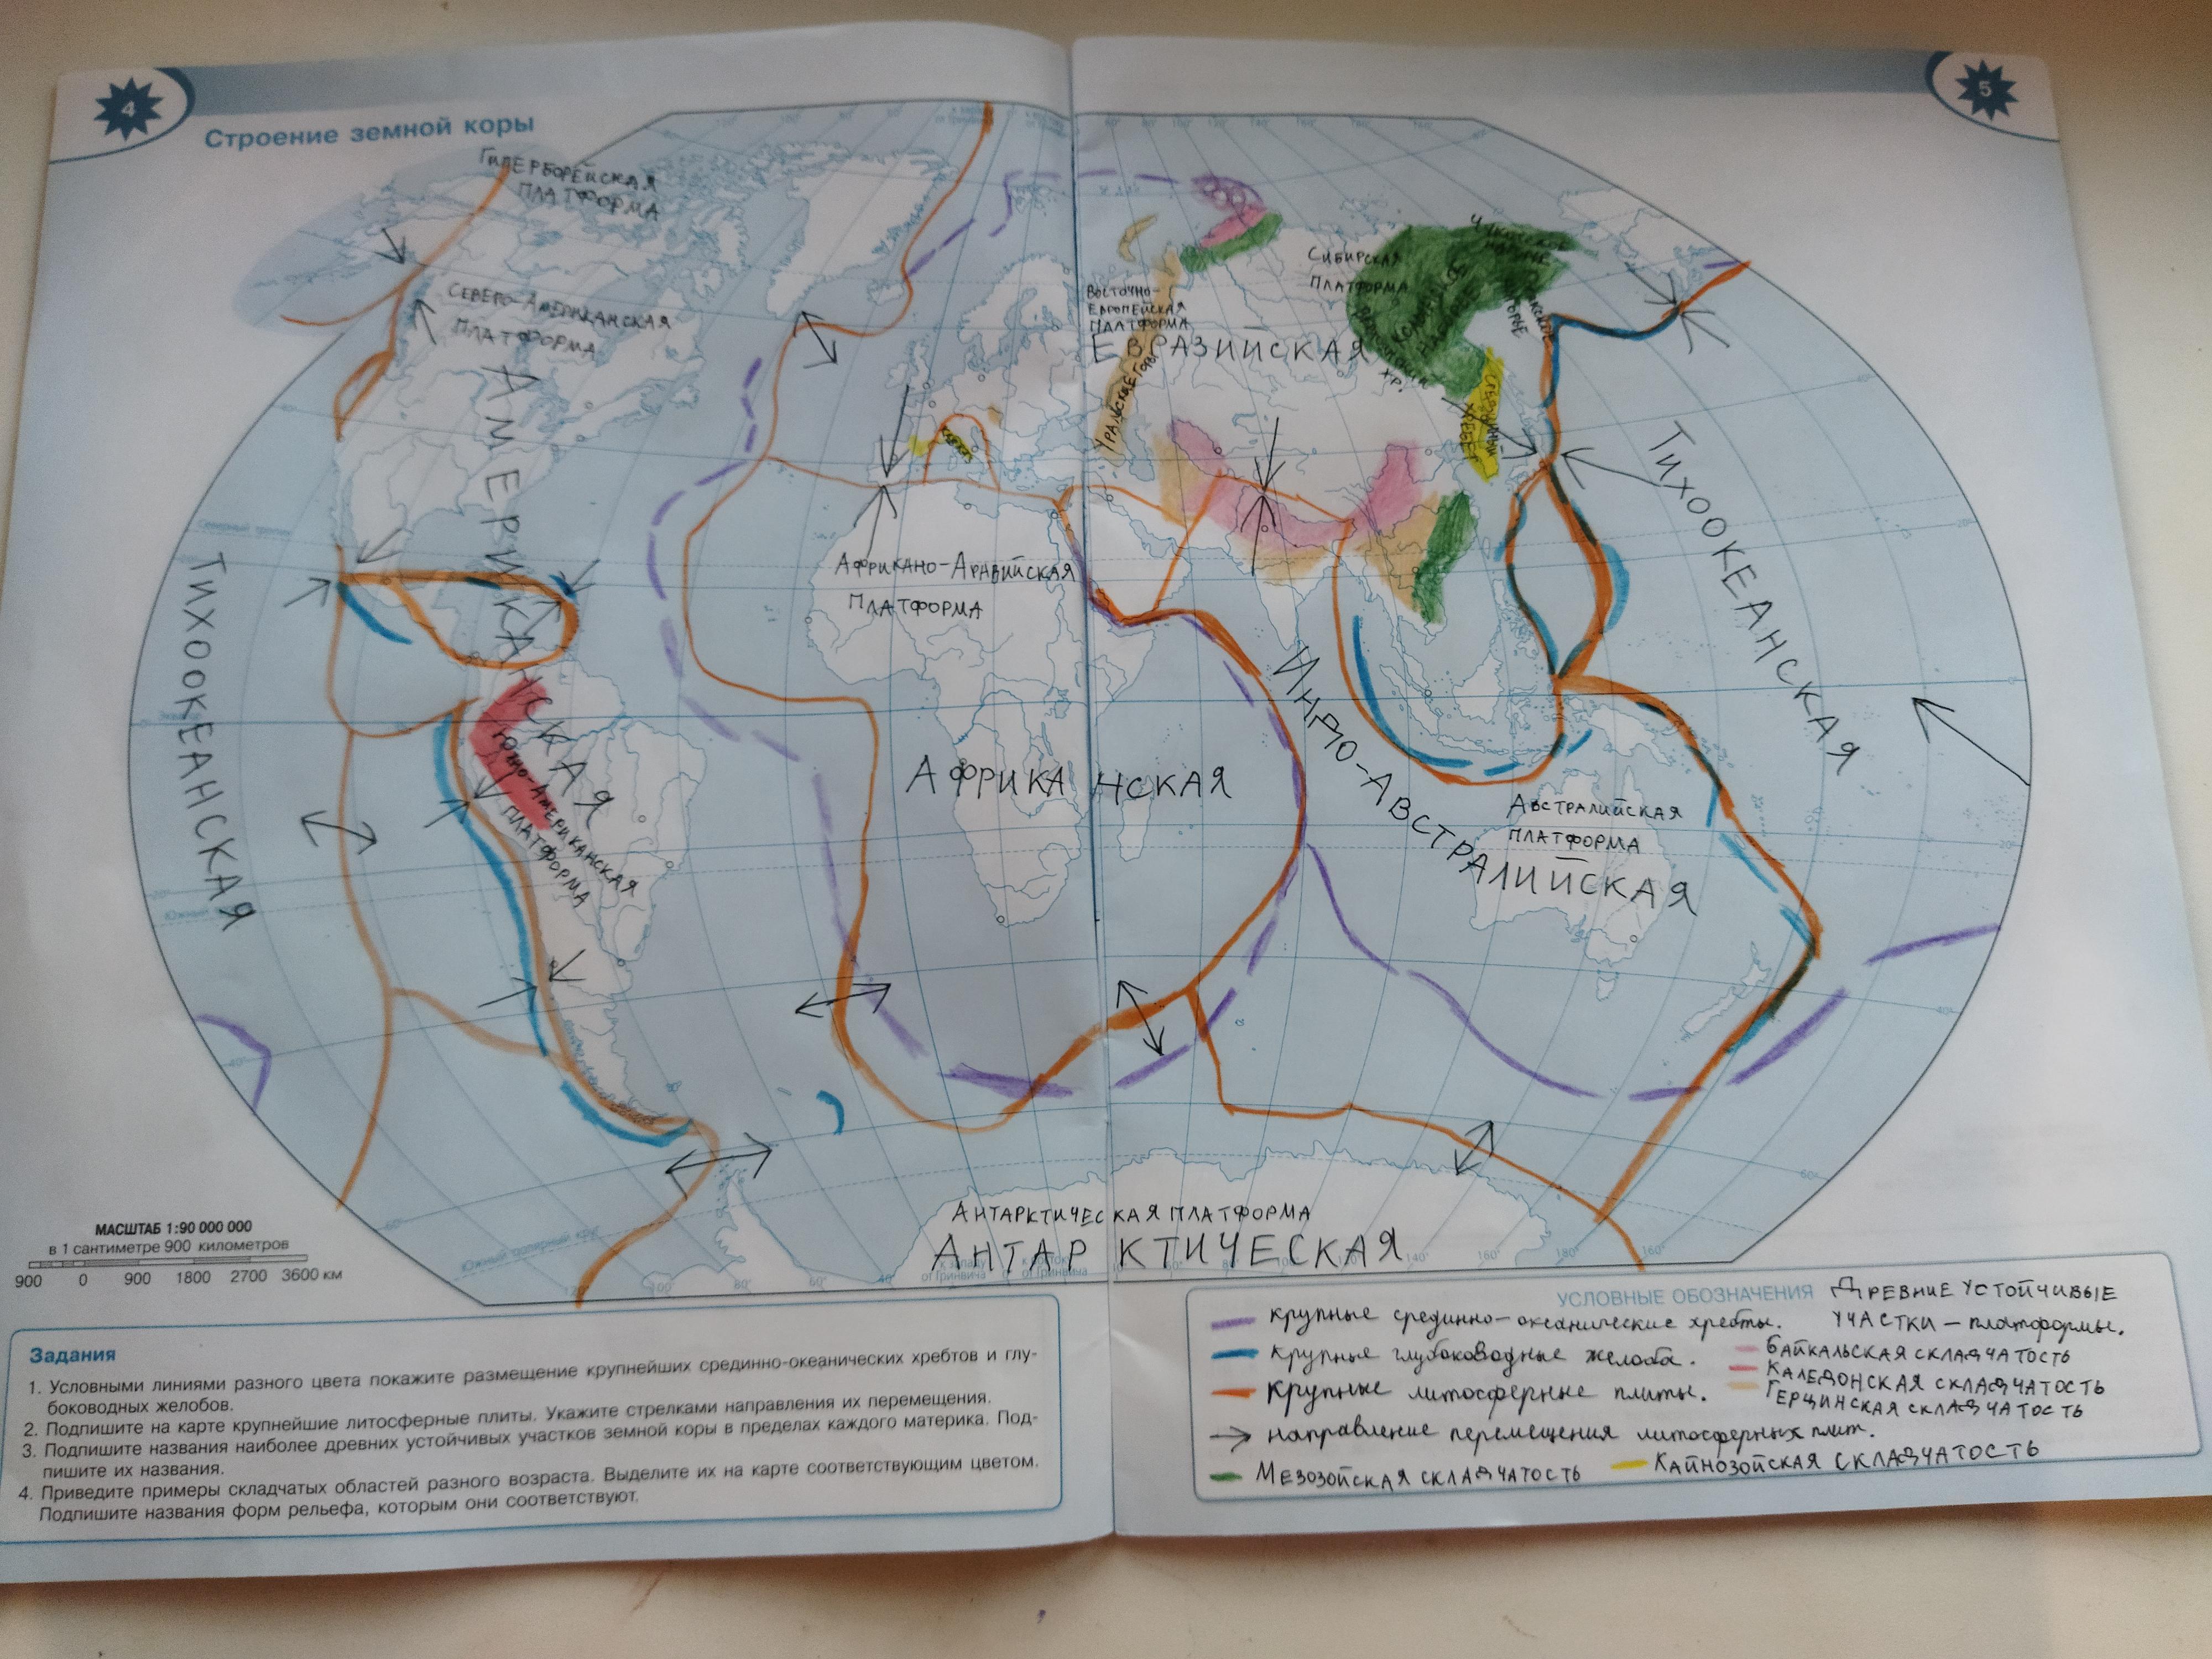 4
5
Строение земной коры
ГИПЕРБОРЕЙСКАЯ
ПЛАТФОРМА
СЕВЕРО-АМЕРИКАНСКАЯ
ПЛАТФОРМА
АМЕРИКАНСКАЯ
ТИХООКЕАНСКАЯ
ЮЖНО-АМЕРИКАНСКАЯ
ПЛАТФОРМА
АФРИКАНО-АРАВИЙСКАЯ
ПЛАТФОРМА
АФРИКАНСКАЯ
ВОСТОЧНО-
ЕВРОПЕЙСКАЯ
ПЛАТФОРМА
ЕВРАЗИЙСКАЯ
УРАЛЬСКИЕ ГОРЫ
СИБИРСКАЯ
ПЛАТФОРМА
ХР.
ТИХООКЕАНСКАЯ
ИНДО-АВСТРАЛИЙСКАЯ
АВСТРАЛИЙСКАЯ
ПЛАТФОРМА
АНТАРКТИЧЕСКАЯ ПЛАТФОРМА
АНТАРКТИЧЕСКАЯ
МАСШТАБ 1:90 000 000
в 1 сантиметре 900 километров
900 0 900 1800 2700 3600 км
Задания
1. Условными линиями разного цвета покажите размещение крупнейших срединно-океанических хребтов и глу-
боководных желобов.
2. Подпишите на карте крупнейшие литосферные плиты. Укажите стрелками направления их перемещения.
3. Подпишите названия наиболее древних устойчивых участков земной коры в пределах каждого материка. Под-
пишите их названия.
4. Приведите примеры складчатых областей разного возраста. Выделите их на карте соответствующим цветом.
Подпишите названия форм рельефа, которым они соответствуют.
УСЛОВНЫЕ ОБОЗНАЧЕНИЯ
крупные срединно-океанические хребты.
крупные глубоководные желоба.
крупные литосферные плиты.
направление перемещения литосферных плит.
МЕЗОЗОЙСКАЯ СКЛАДЧАТОСТЬ
ДРЕВНИЕ УСТОЙЧИВЫЕ
УЧАСТКИ – платформы.
БАЙКАЛЬСКАЯ СКЛАДЧАТОСТЬ
КАЛЕДОНСКАЯ СКЛАДЧАТОСТЬ
ГЕРЦИНСКАЯ СКЛАДЧАТОСТЬ
КАЙНОЗОЙСКАЯ СКЛАДЧАТОСТЬ